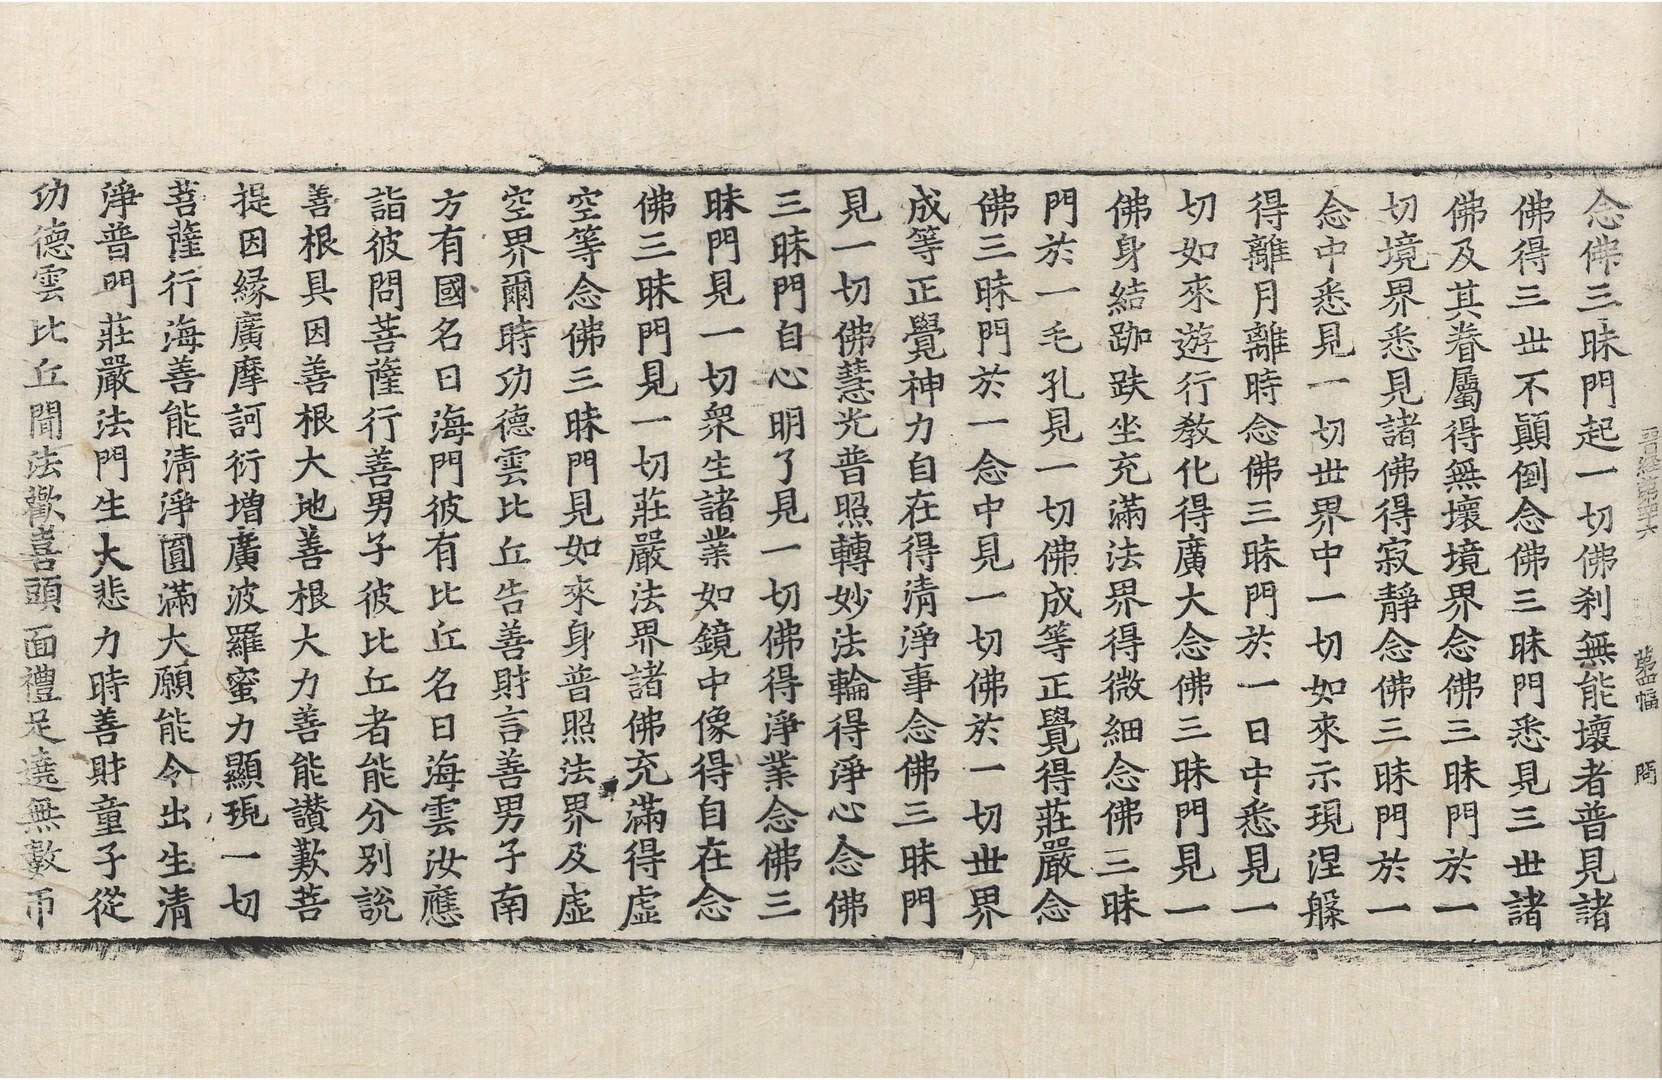 晋經第四十六　第四幅　問
念佛三昧門起一切佛刹無能壞者普見諸
佛得三世不顚倒念佛三昧門悉見三世諸
佛及其眷屬得無壞境界念佛三昧門於一
切境界悉見諸佛得寂靜念佛三昧門於一
念中悉見一切世界中一切如來示現涅槃
得離月離時念佛三昧門於一日中悉見一
切如來遊行教化得廣大念佛三昧門見一
佛身結跏趺坐充滿法界得微細念佛三昧
門於一毛孔見一切佛成等正覺得莊嚴念
佛三昧門於一念中見一切佛於一切世界
成等正覺神力自在得清淨事念佛三昧門
見一切佛慧光普照轉妙法輪得淨心念佛
三昧門自心明了見一切佛得淨業念佛三
昧門見一切衆生諸業如鏡中像得自在念
佛三昧門見一切莊嚴法界諸佛充滿得虛
空等念佛三昧門見如來身普照法界及虛
空界爾時功德雲比丘告善財言善男子南
方有國名曰海門彼有比丘名曰海雲汝應
詣彼問菩薩行善男子彼比丘者能分別說
善根具因善根大地善根大力善能讚歎菩
提因緣廣摩訶衍增廣波羅蜜力顯現一切
菩薩行海善能清淨圓滿大願能令出生清
淨普門莊嚴法門生大悲力時善財童子從
功德雲比丘聞法歡喜頭面禮足遶無數帀